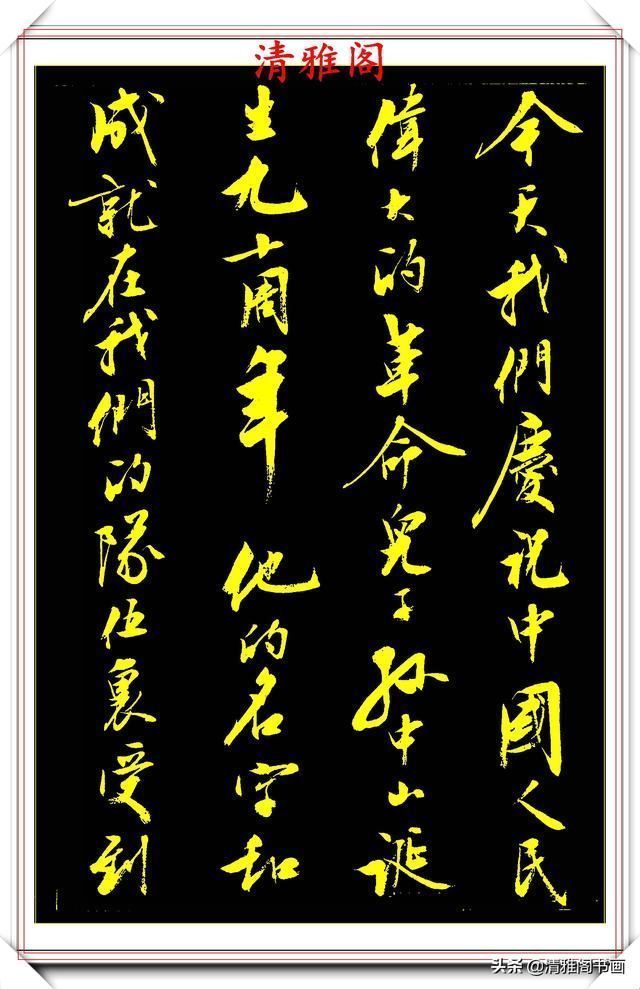 清雅阁
今天我們慶祝中國人民
偉大的革命兒子孫中山誕
生九十周年 他的名字和
成就在我們的隊伍裏受到
头条 @清雅阁书画